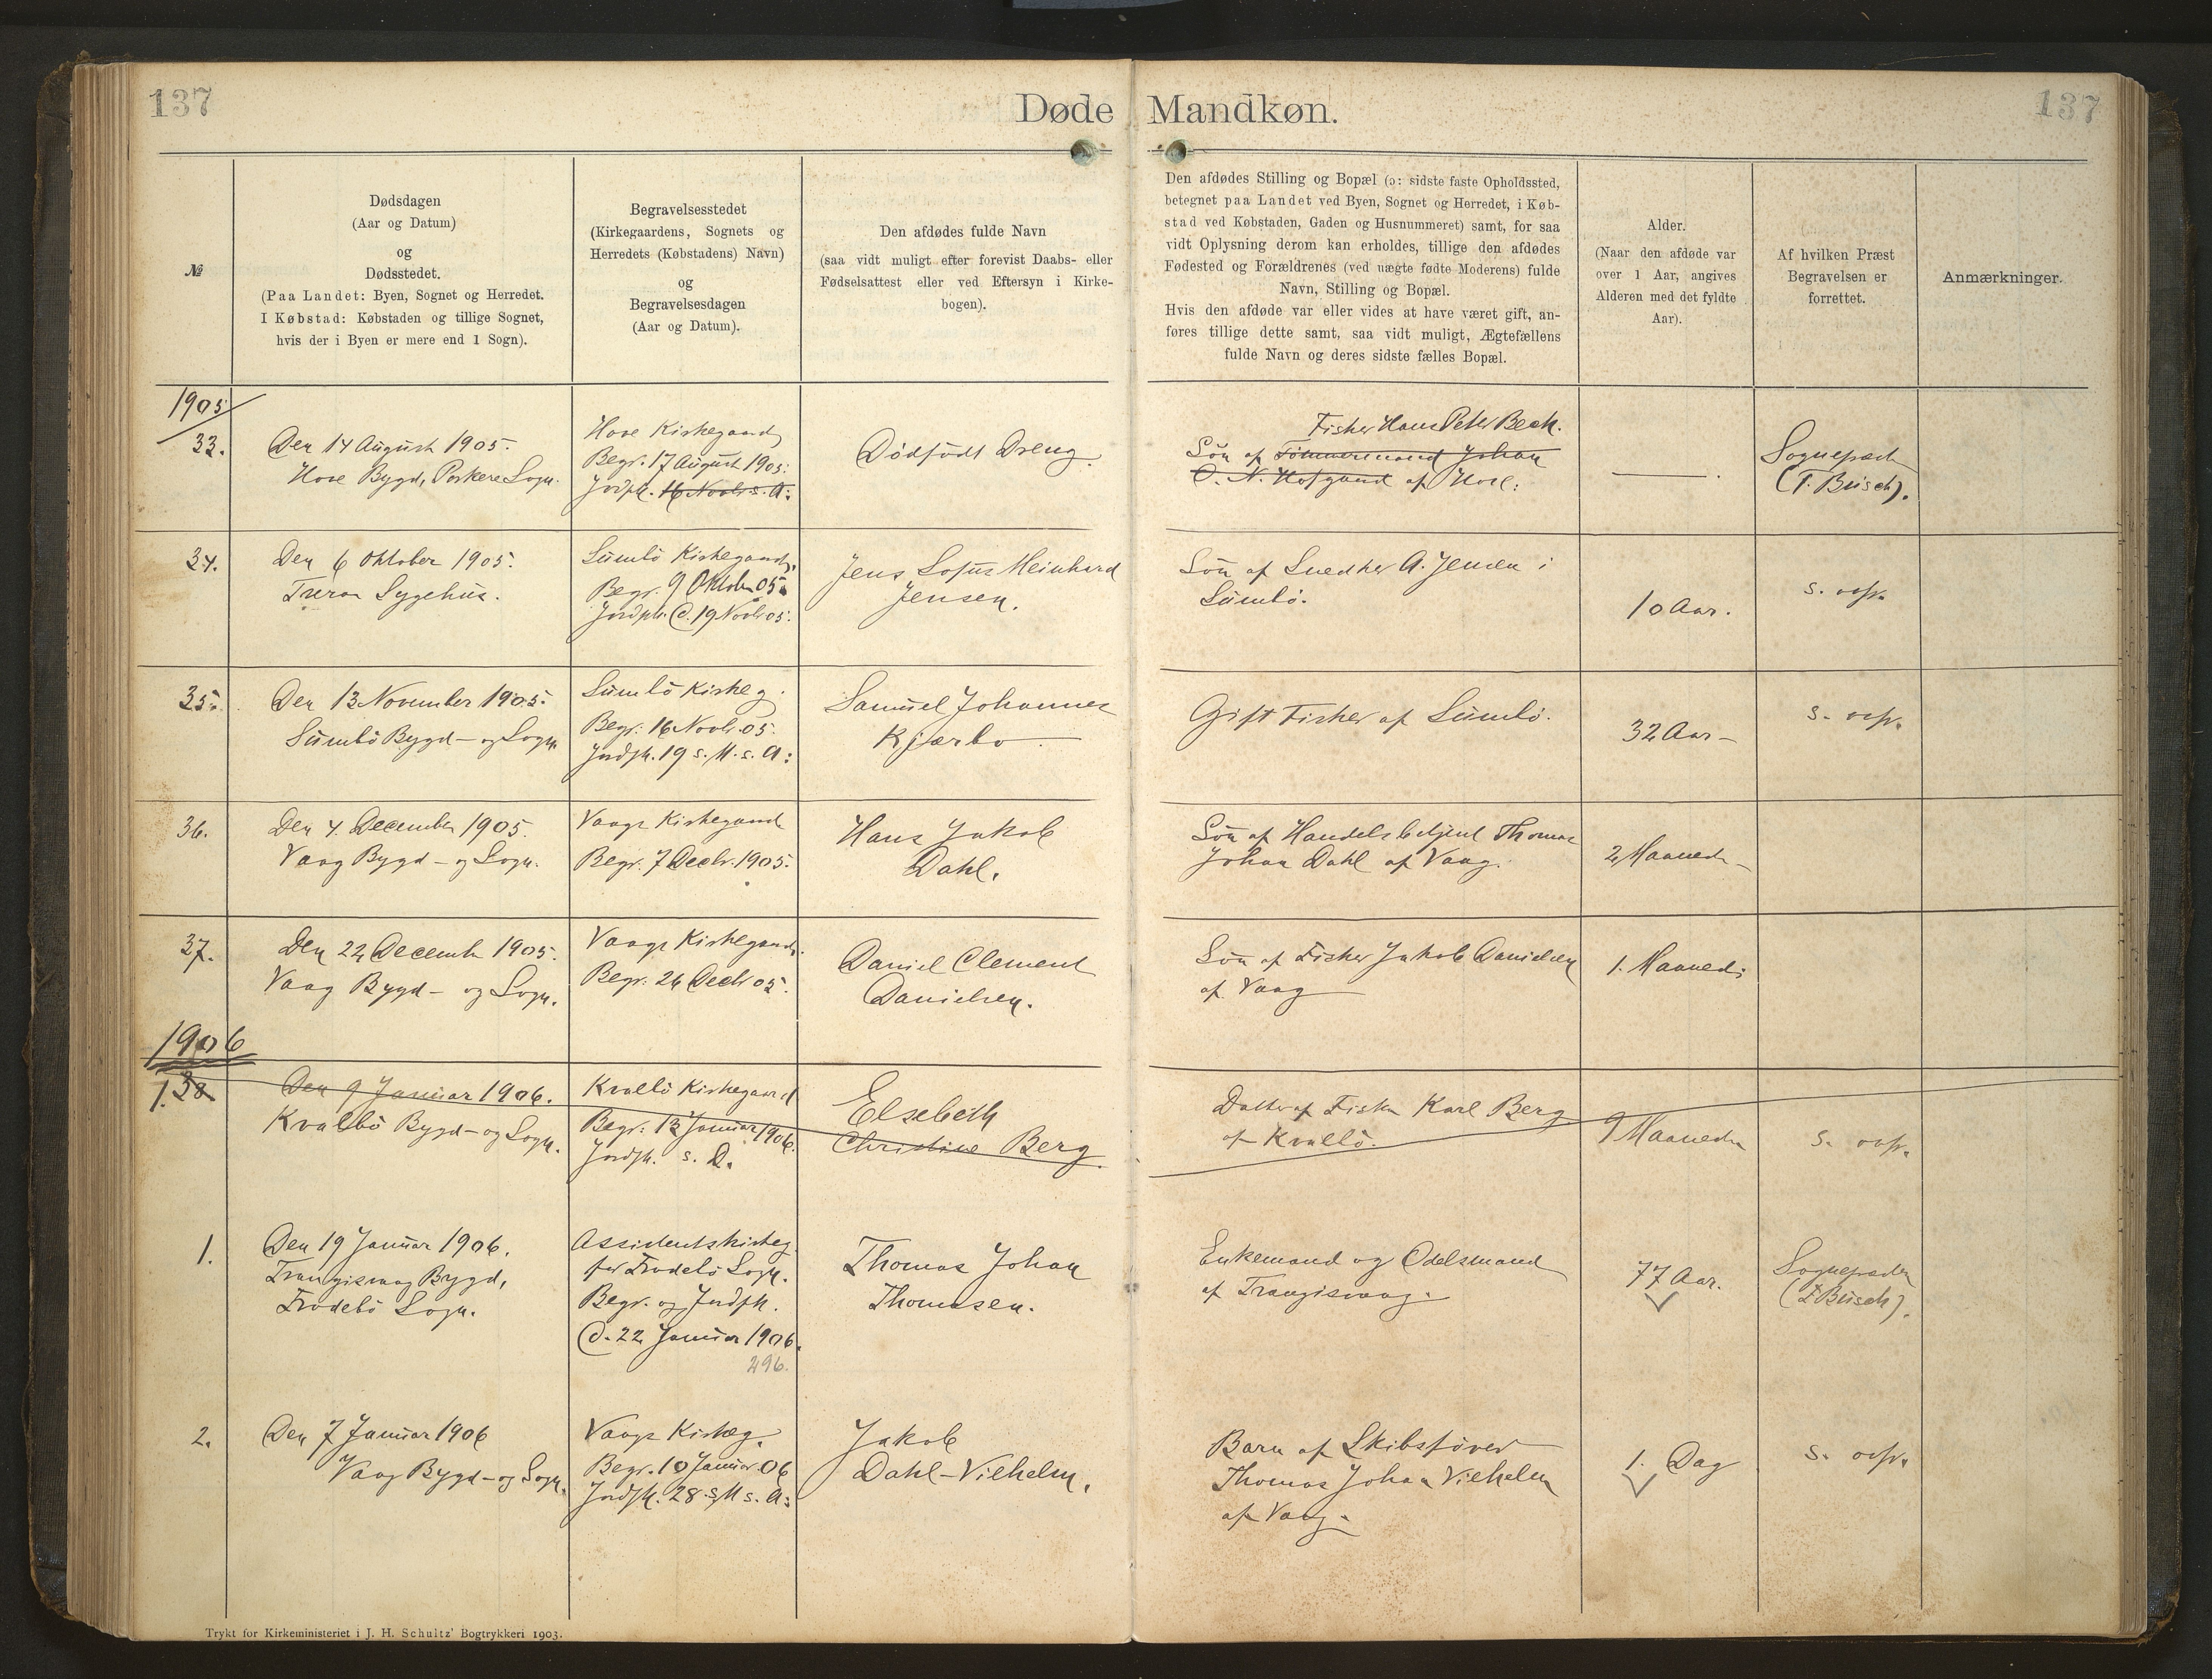 137
Døde Mandkøn.
137
№
Dødsdagen
(Aar og Datum)
og
Dødsstedet.
(Paa Landet: Byen, Sognet og Herredet.
I Købstad: Købstaden og tillige Sognet,
hvis der i Byen er mere end 1 Sogn).
Begravelsesstedet
(Kirkegaardens, Sognets og
Herredets (Købstadens) Navn)
og
Begravelsesdagen
(Aar og Datum).
Den afdødes fulde Navn
(saa vidt muligt efter forevist Daabs- eller
Fødselsattest eller ved Eftersyn i Kirke-
bogen).
Den afdødes Stilling og Bopæl (ɔ: sidste faste Opholdssted,
betegnet paa Landet ved Byen, Sognet og Herredet, i Køb-
stad ved Købstaden, Gaden og Husnummeret) samt, for saa
vidt Oplysning derom kan erholdes, tillige den afdødes
Fødested og Forældrenes (ved uægte fødte Moderens) fulde
Navn, Stilling og Bopæl.
Hvis den afdøde var eller vides at have været gift, an-
føres tillige dette samt, saa vidt muligt, Ægtefællens
fulde Navn og deres sidste fælles Bopæl.
Alder.
(Naar den afdøde var
over 1 Aar, angives
Alderen med det fyldte
Aar).
Af hvilken Præst
Begravelsen er
forrettet.
Anmærkninger.
1905
33.
Den 14 August 1905.
Hove Bygd, Porkere Sogn.
Hove Kirkegaard
Begr. 17 August 1905.
Jordpk. 16 Novbr. s. A:
Dødfødt Dreng.
Fisker Hans Peter Bech.
Søn af Tømmermand Johan
O. N. Hofgaard af Hove:
Sognepræst
(T. Busch).
34.
Den 6 Oktober 1905.
Sygehus.
Sumbö Kirkegaard,
Begr. 9 Oktober 05.
Jordpk. d. 19 Novbr 05.
Jens Sofus Meinhard
Jensen.
Søn af Snedker A. Jensen i
Sumbö.
10 Aar.
s. ovfr.
35.
Den 13 November 1905.
Sumbö Bygd - og Sogn
Sumbö Kirkeg.
Begr. 16 Novbr. 05.
Jordpk. 19 s. M. s. A:
Samuel Johannes
Kjærbo
Gift Fisker af Sumbö.
32 Aar -
s. ovfr.
36.
Den 4. December 1905.
Vaag Bygd - og Sogn.
Vaags Kirkegaard
Begr. 7 Decbr. 1905.
Hans Jakob
Dahl.
Søn af Handelsbetjent Thomas
Johan Dahl af Vaag.
2 Maaneder
37.
Den 22 December 1905.
Vaag Bygd - og Sogn.
Vaags Kirkegaard.
Begr. 26 Decbr 05.
Daniel Clement
Danielsen.
Søn af Fisker Jakob Danielsen
af Vaag
1. Maaned:
1906
1. 38
Den 9 Januar 1906.
Kvalbö Bygd - og Sogn.
Kvalbö Kirkegaard
Begr. 13 Januar 1906.
Jordpk. s. D.
Elsebeth
Christine Berg.
Datter af Fisker Karl Berg
af Kvalbö.
9 Maaneder
s. ovfr.
1.
Den 19 Januar 1906.
Trangisvaag Bygd,
Frodebö Sogn.
Assistentskirkeg.
for Frodebö Sogn.
Begr. og Jordpk.
d. 22 Januar 1906.
296.
Thomas Johan
Thomasen.
Enkemand og Odelsmand
af Trangisvaag.
77 Aar.
Sognepræsten
(T Busch).
2.
Den 7 Januar 1906
Vaag Bygd - og Sogn.
Vaags Kirkeg.
Begr. 10 Januar. 06
Jordpk. 28 s M s. A:
Jakob
Dahl-Vilhelm.
Barn af Skibsfører
Thomas Johan Vilhelm
af Vaag.
1. Dag
s. ovfr.
Trykt for Kirkeministeriet i J. H. Schultz' Bogtrykkeri 1903.